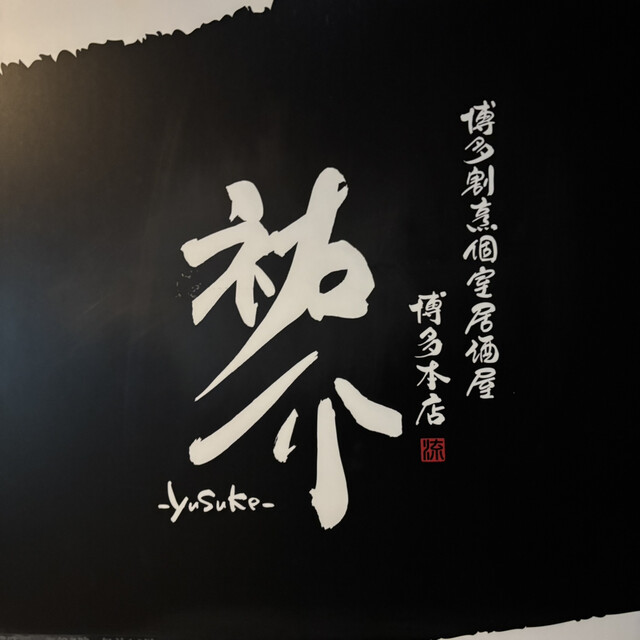 博多割烹個室居酒屋
博多本店
祐介
-yusuke-
流